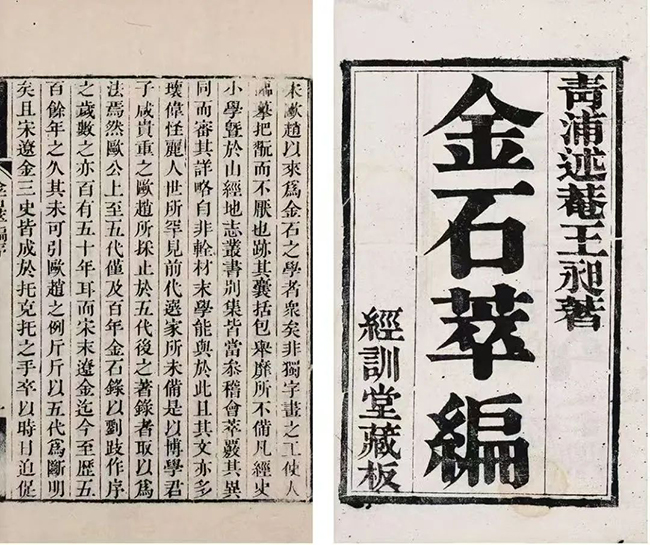 青浦述菴王昶著
金石萃編
經訓堂藏板
宋歐趙以來爲金石之學者衆矣非獨字畫之工使人
臨摹把翫而不厭也跡其囊括包舉靡所不備凡經史
小學曁於山經地志叢書別集皆當叅稽會萃覈其異
同而審其詳略自非輇材末學能與於此且其文亦多
瓌偉怪麗人世所罕見前代選家所未備是以博學君
子咸貴重之歐趙所採止於五代後之著錄者取以爲
法焉然歐公上至五代僅及百年金石錄以劉跂作序
之歲數之亦百有五十年耳而宋末遼金迄今至歷五
百餘年之久其未可引歐趙之例斤斤以五代爲斷明
矣且宋遼金三史皆成於托克托之手卒以時日迫促